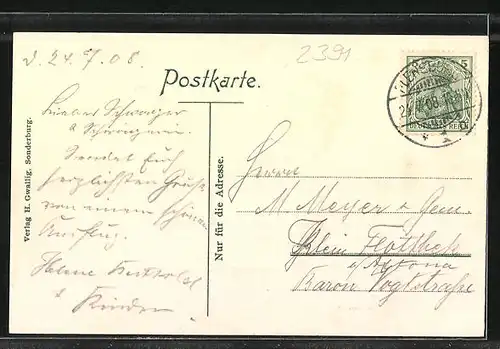 d. 24. 7. 08.
2391
Postkarte.
5
FLENSBURG
DEUTSCHES REICH
Lieber Schwager
& Schwägerin.
Sendet Euch
herzlichsten Grüße
von einem schönen
Ausflug.
Helene
& Kinder
Nur für die Adresse.
Verlag H. Gwallig, Sonderburg.
Herrn
M Meyer & Gem.
Klein Flottbek
i/Altona
Baron Vogtstraße